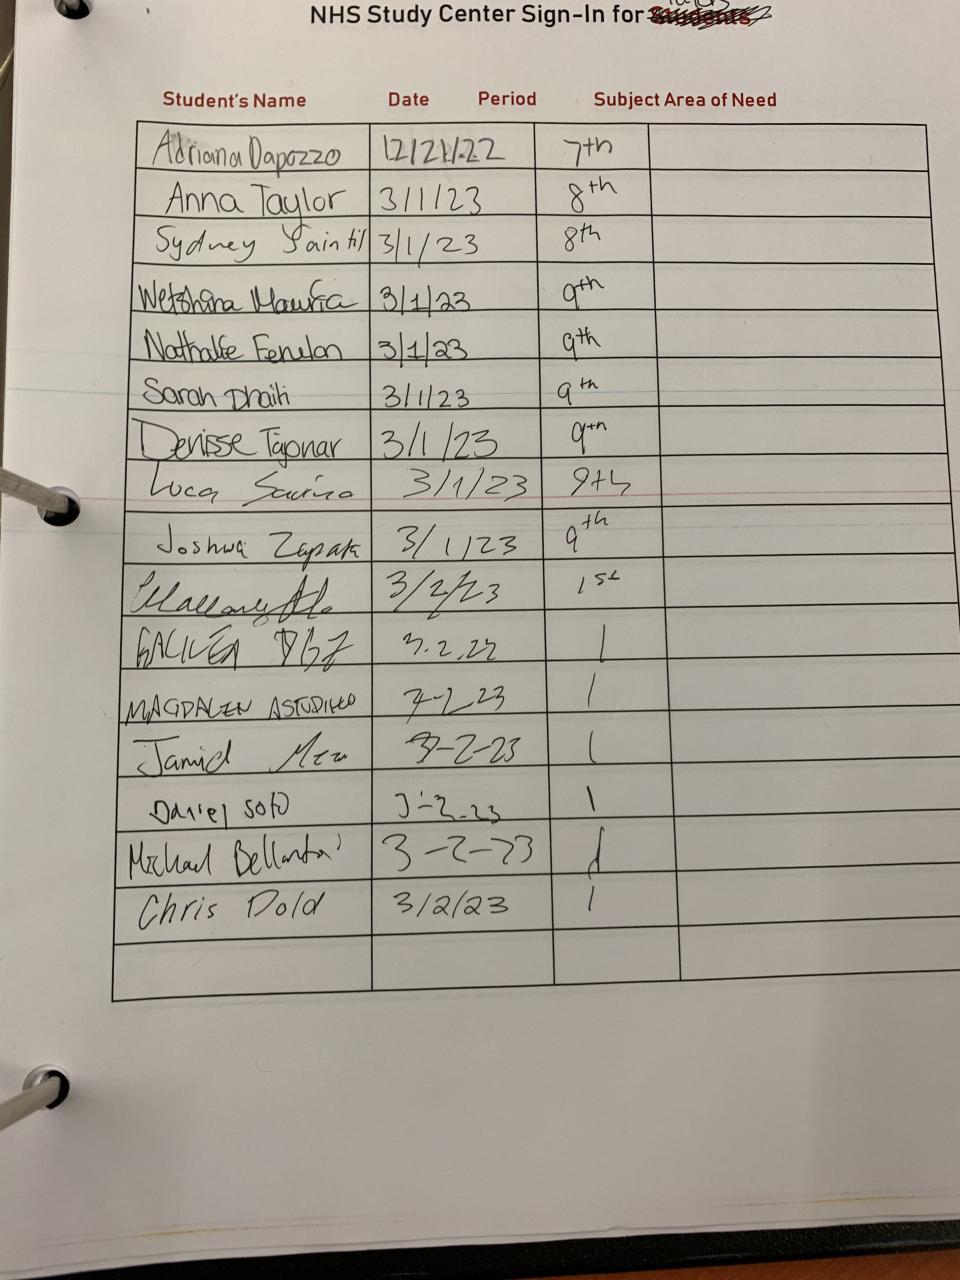 NHS Study Center Sign-In for
Student's Name Date Period Subject Area of Need
Adriana Dapozzo 12/21/22 7th
Anna Taylor 3/1/23 8th
Sydney Saintil 3/1/23 8th
3/1/23 9th
Nathalie Fenelon 3/1/23 9th
Sarah Dhaiti 3/1/23 9th
Denisse 3/1/23 9th
Luca Savino 3/1/23 9th
Joshua Zapata 3/1/23 9th
3/2/23 1st
3.2.22 1
MAGDALEN ASTUDILLO 3-2-23 1
Jamid 3-2-23 1
Daniel Soto 3-2-23 1
Michael 3-2-23 1
Chris Dold 3/2/23 1